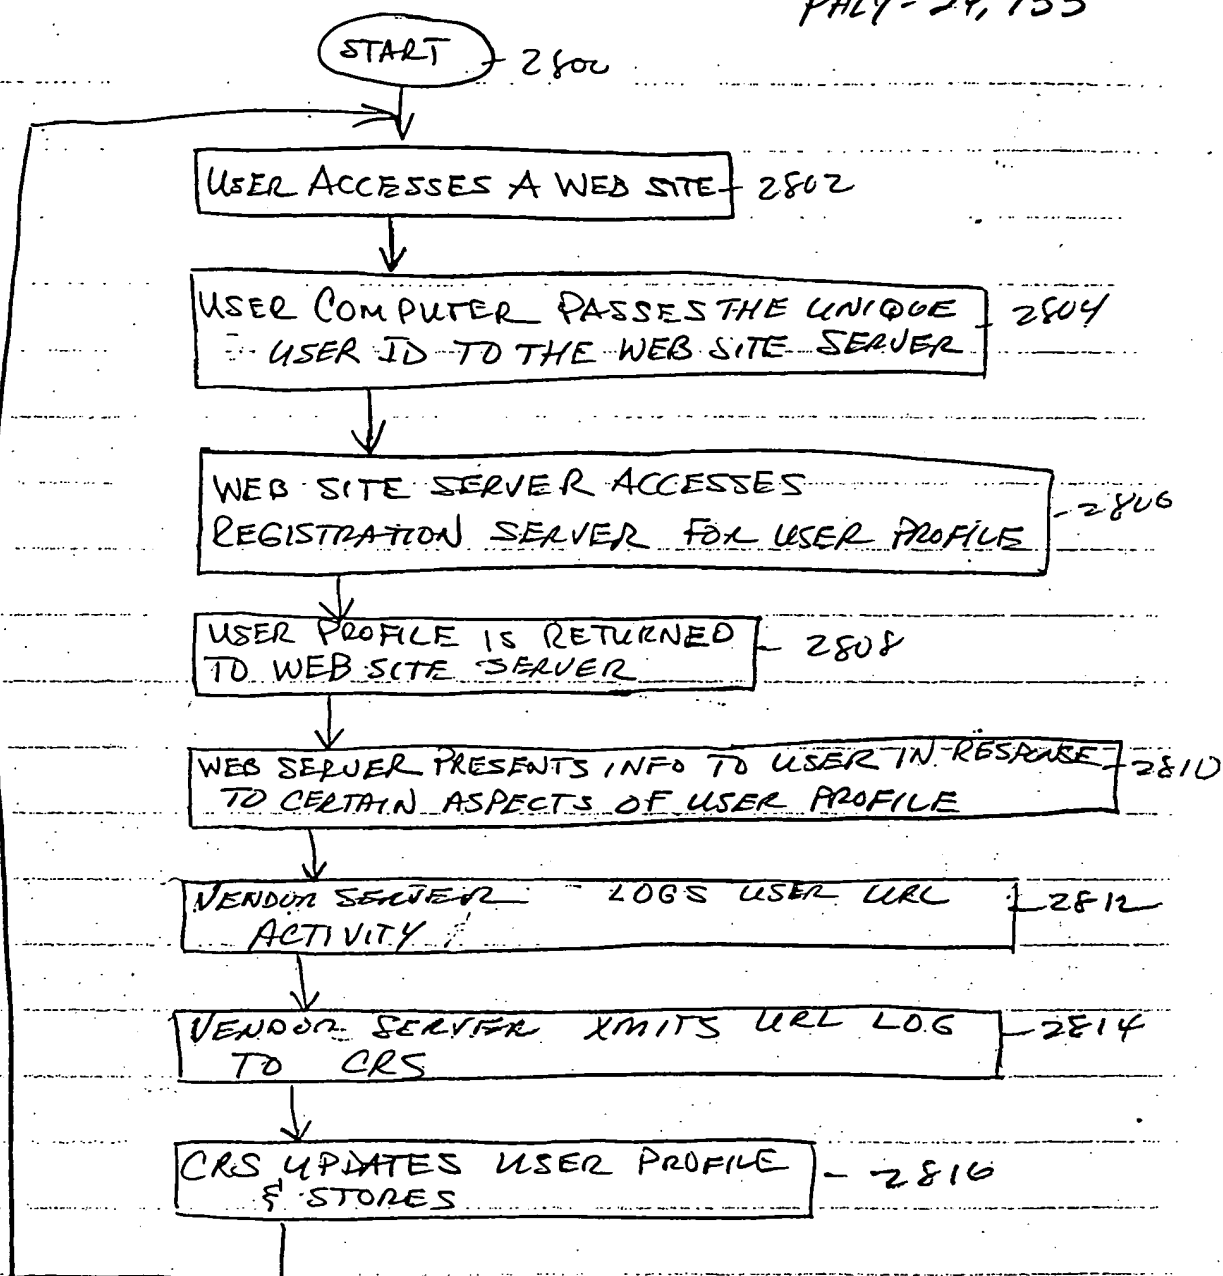 PHLY-24,755
START 2800
USER ACCESSES A WEB SITE 2802
USER COMPUTER PASSES THE UNIQUE 2804
USER ID TO THE WEB SITE SERVER
WEB SITE SERVER ACCESSES
REGISTRATION SERVER FOR USER PROFILE 2806
USER PROFILE IS RETURNED 2808
TO WEB SITE SERVER
WEB SERVER PRESENTS INFO TO USER IN RESPONSE 2810
TO CERTAIN ASPECTS OF USER PROFILE
VENDOR SERVER LOGS USER URL 2812
ACTIVITY
VENDOR SERVER XMITS URL LOG 2814
TO CRS
CRS UPDATES USER PROFILE 2816
& STORES